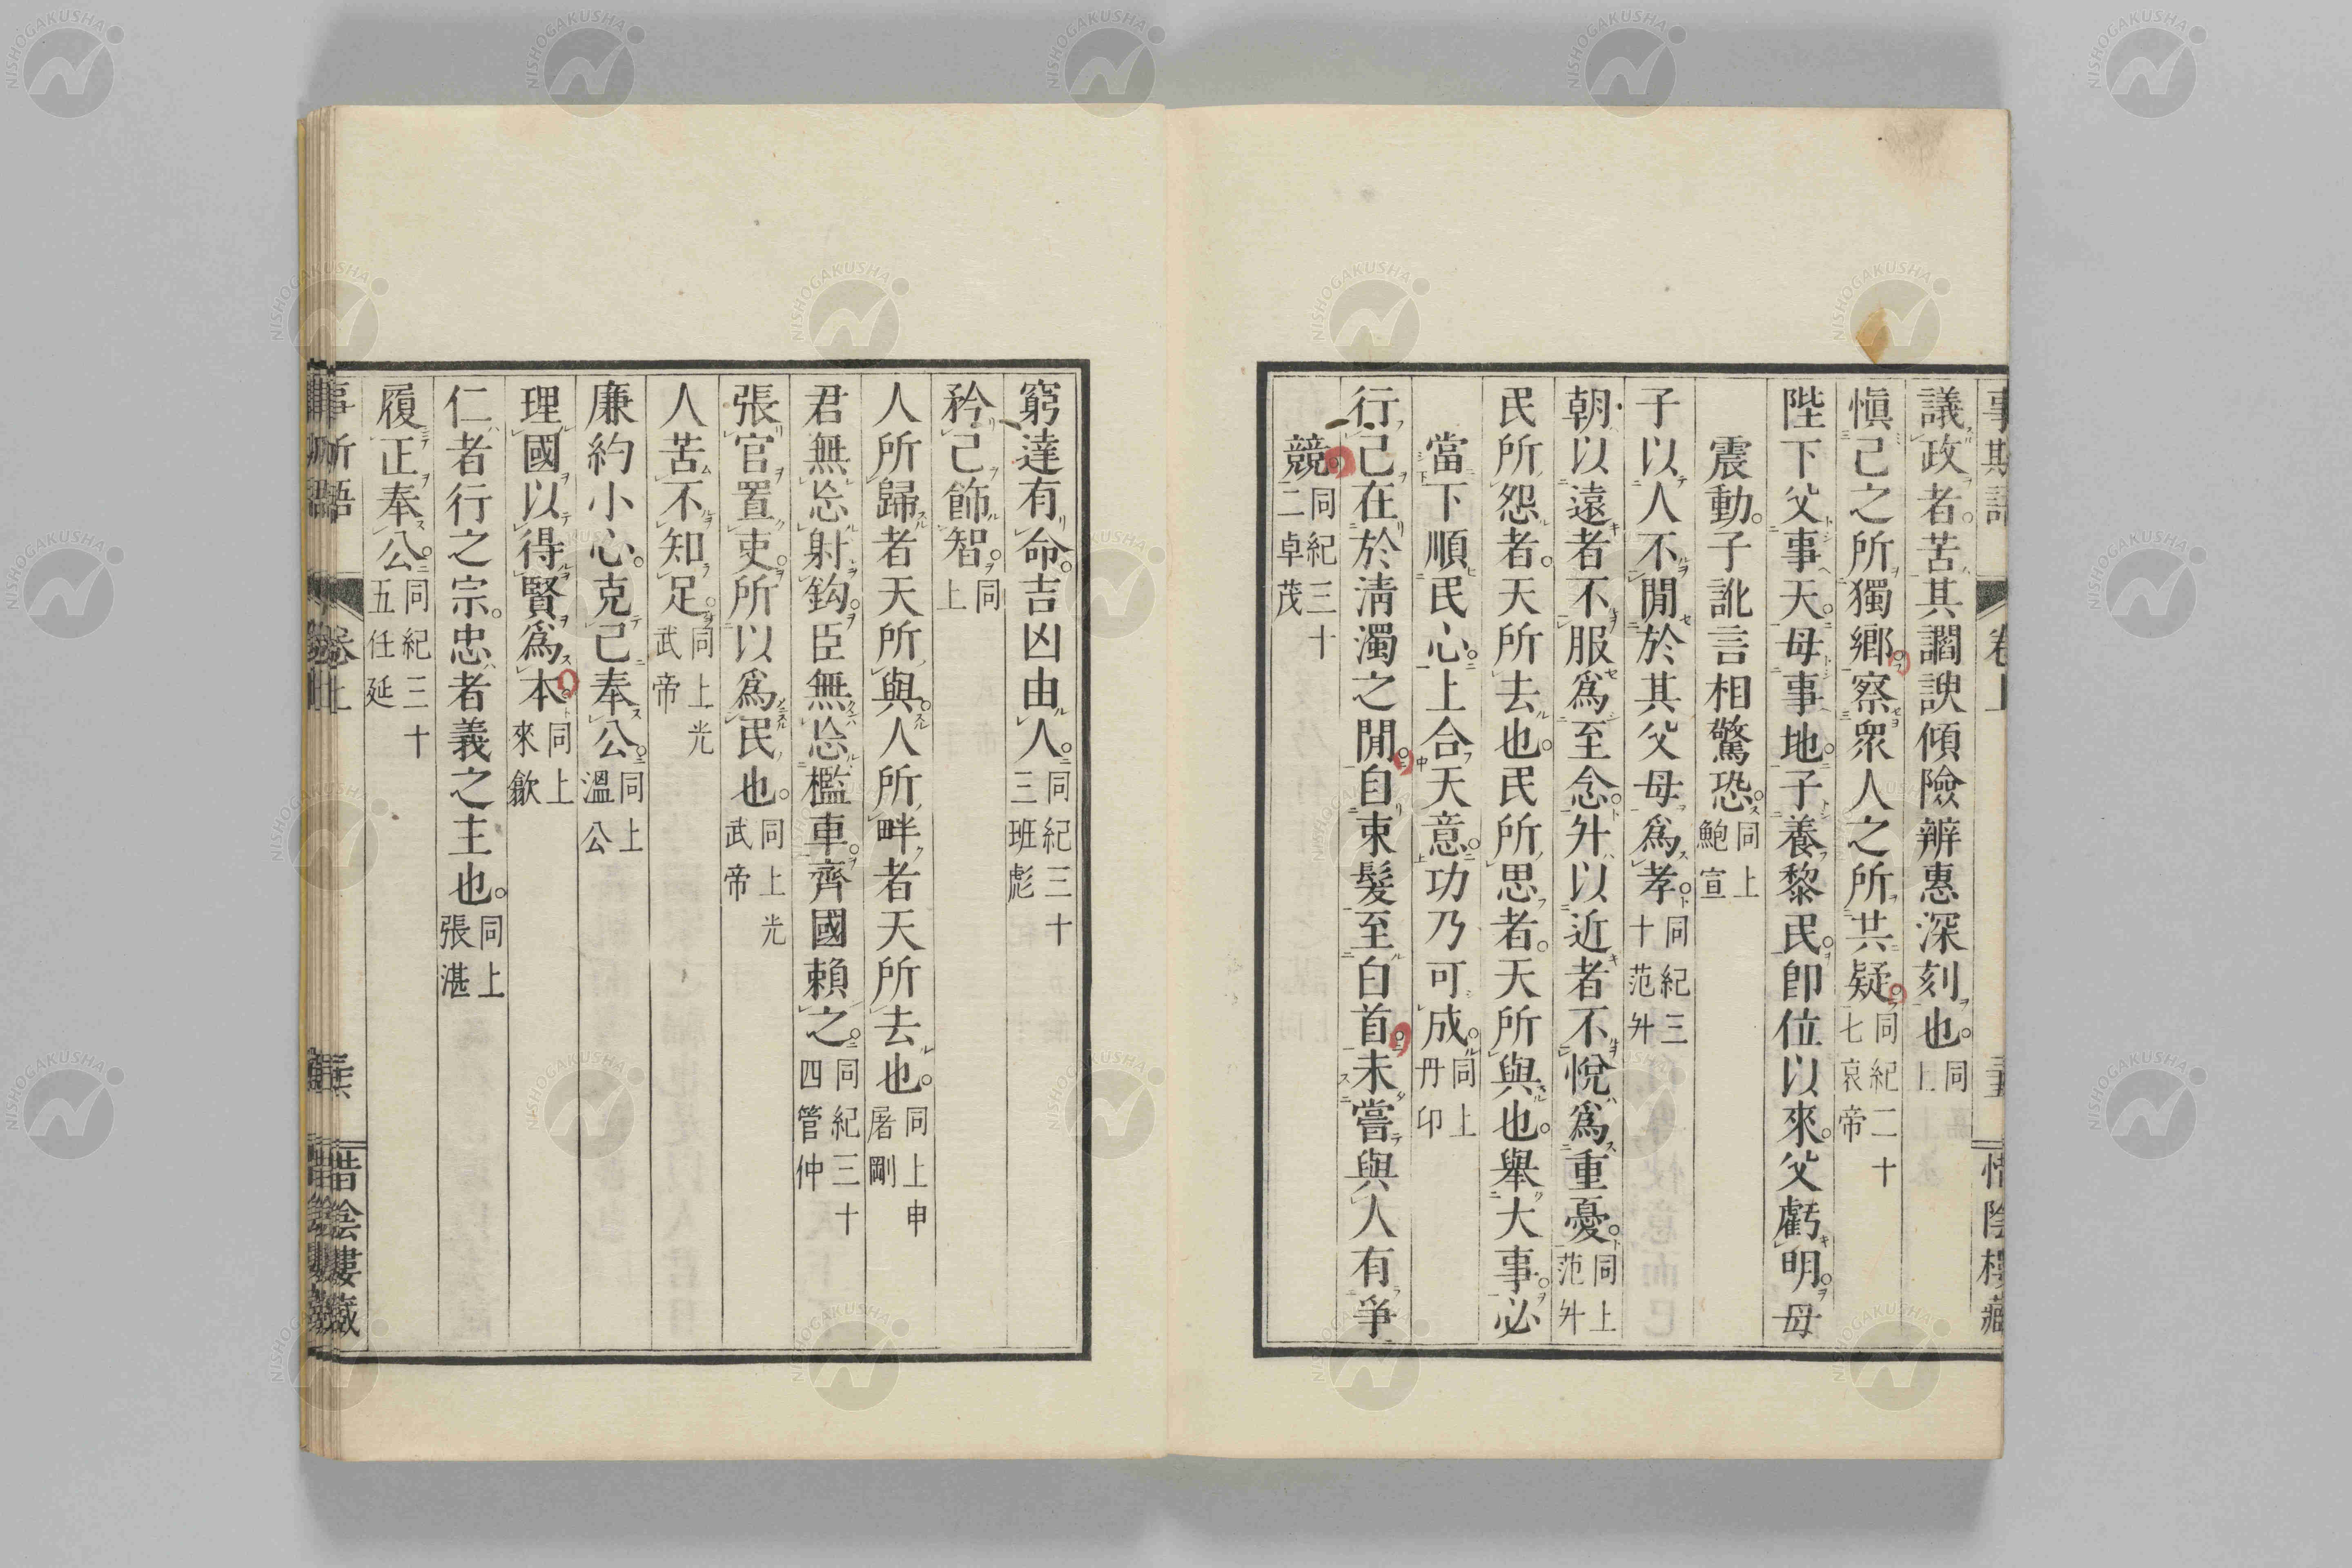 議政者苦其讇諛傾險辨惠深刻也同上
愼己之所獨鄕察衆人之所共疑同紀二十七哀帝
陛下父事天母事地子養黎民卽位以來父虧明母
震動子訛言相驚恐同上鮑宣
子以人不閒於其父母爲孝同紀三十范升
朝以遠者不服爲至念升以近者不悅爲重憂同上范升
民所怨者天所去也民所思者天所與也舉大事必
當下順民心上合天意功乃可成同上丹印
行己在於淸濁之閒自束髮至白首未嘗與人有爭
競同紀三十二卓茂
窮達有命吉凶由人同紀三十三班彪
矜己飾智同上
人所歸者天所與人所畔者天所去也同上申屠剛
君無忩射鈎臣無忩檻車齊國賴之同紀三十四管仲
張官置吏所以爲民也同上光武帝
人苦不知足同上光武帝
廉約小心克己奉公同上溫公
理國以得賢爲本同上來歙
仁者行之宗忠者義之主也同上張湛
履正奉公同紀三十五任延
事斯語 卷上 惜陰樓藏
NISHOGAKUSHA